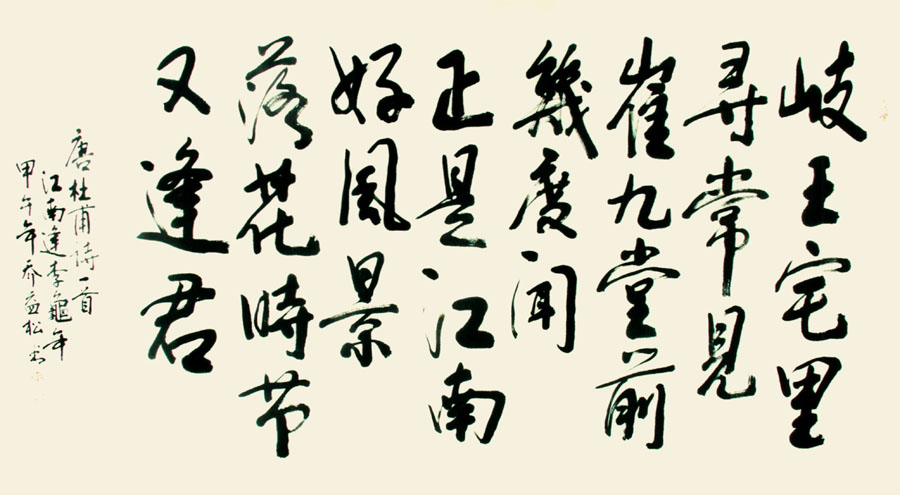 岐王宅里
尋常見
崔九堂前
幾度闻
正是江南
好風景
落花時节
又逢君
唐杜甫诗一首
江南逢李龜年
甲午年乔益松书